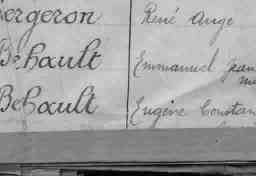 ergeron René Ange
Behault Emmanuel Jean
Behault Eugène Constan